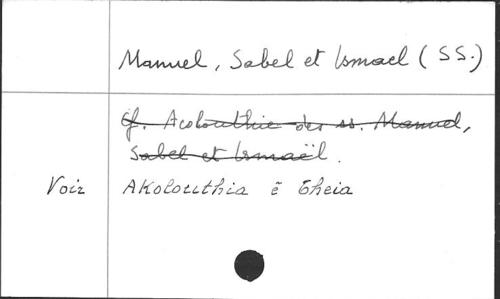 Manuel, Sabel et Ismael (SS.)
cf. Acolouthie des ss. Manuel,
Sabel et Ismaël.
Voir Akolouthia ē theia